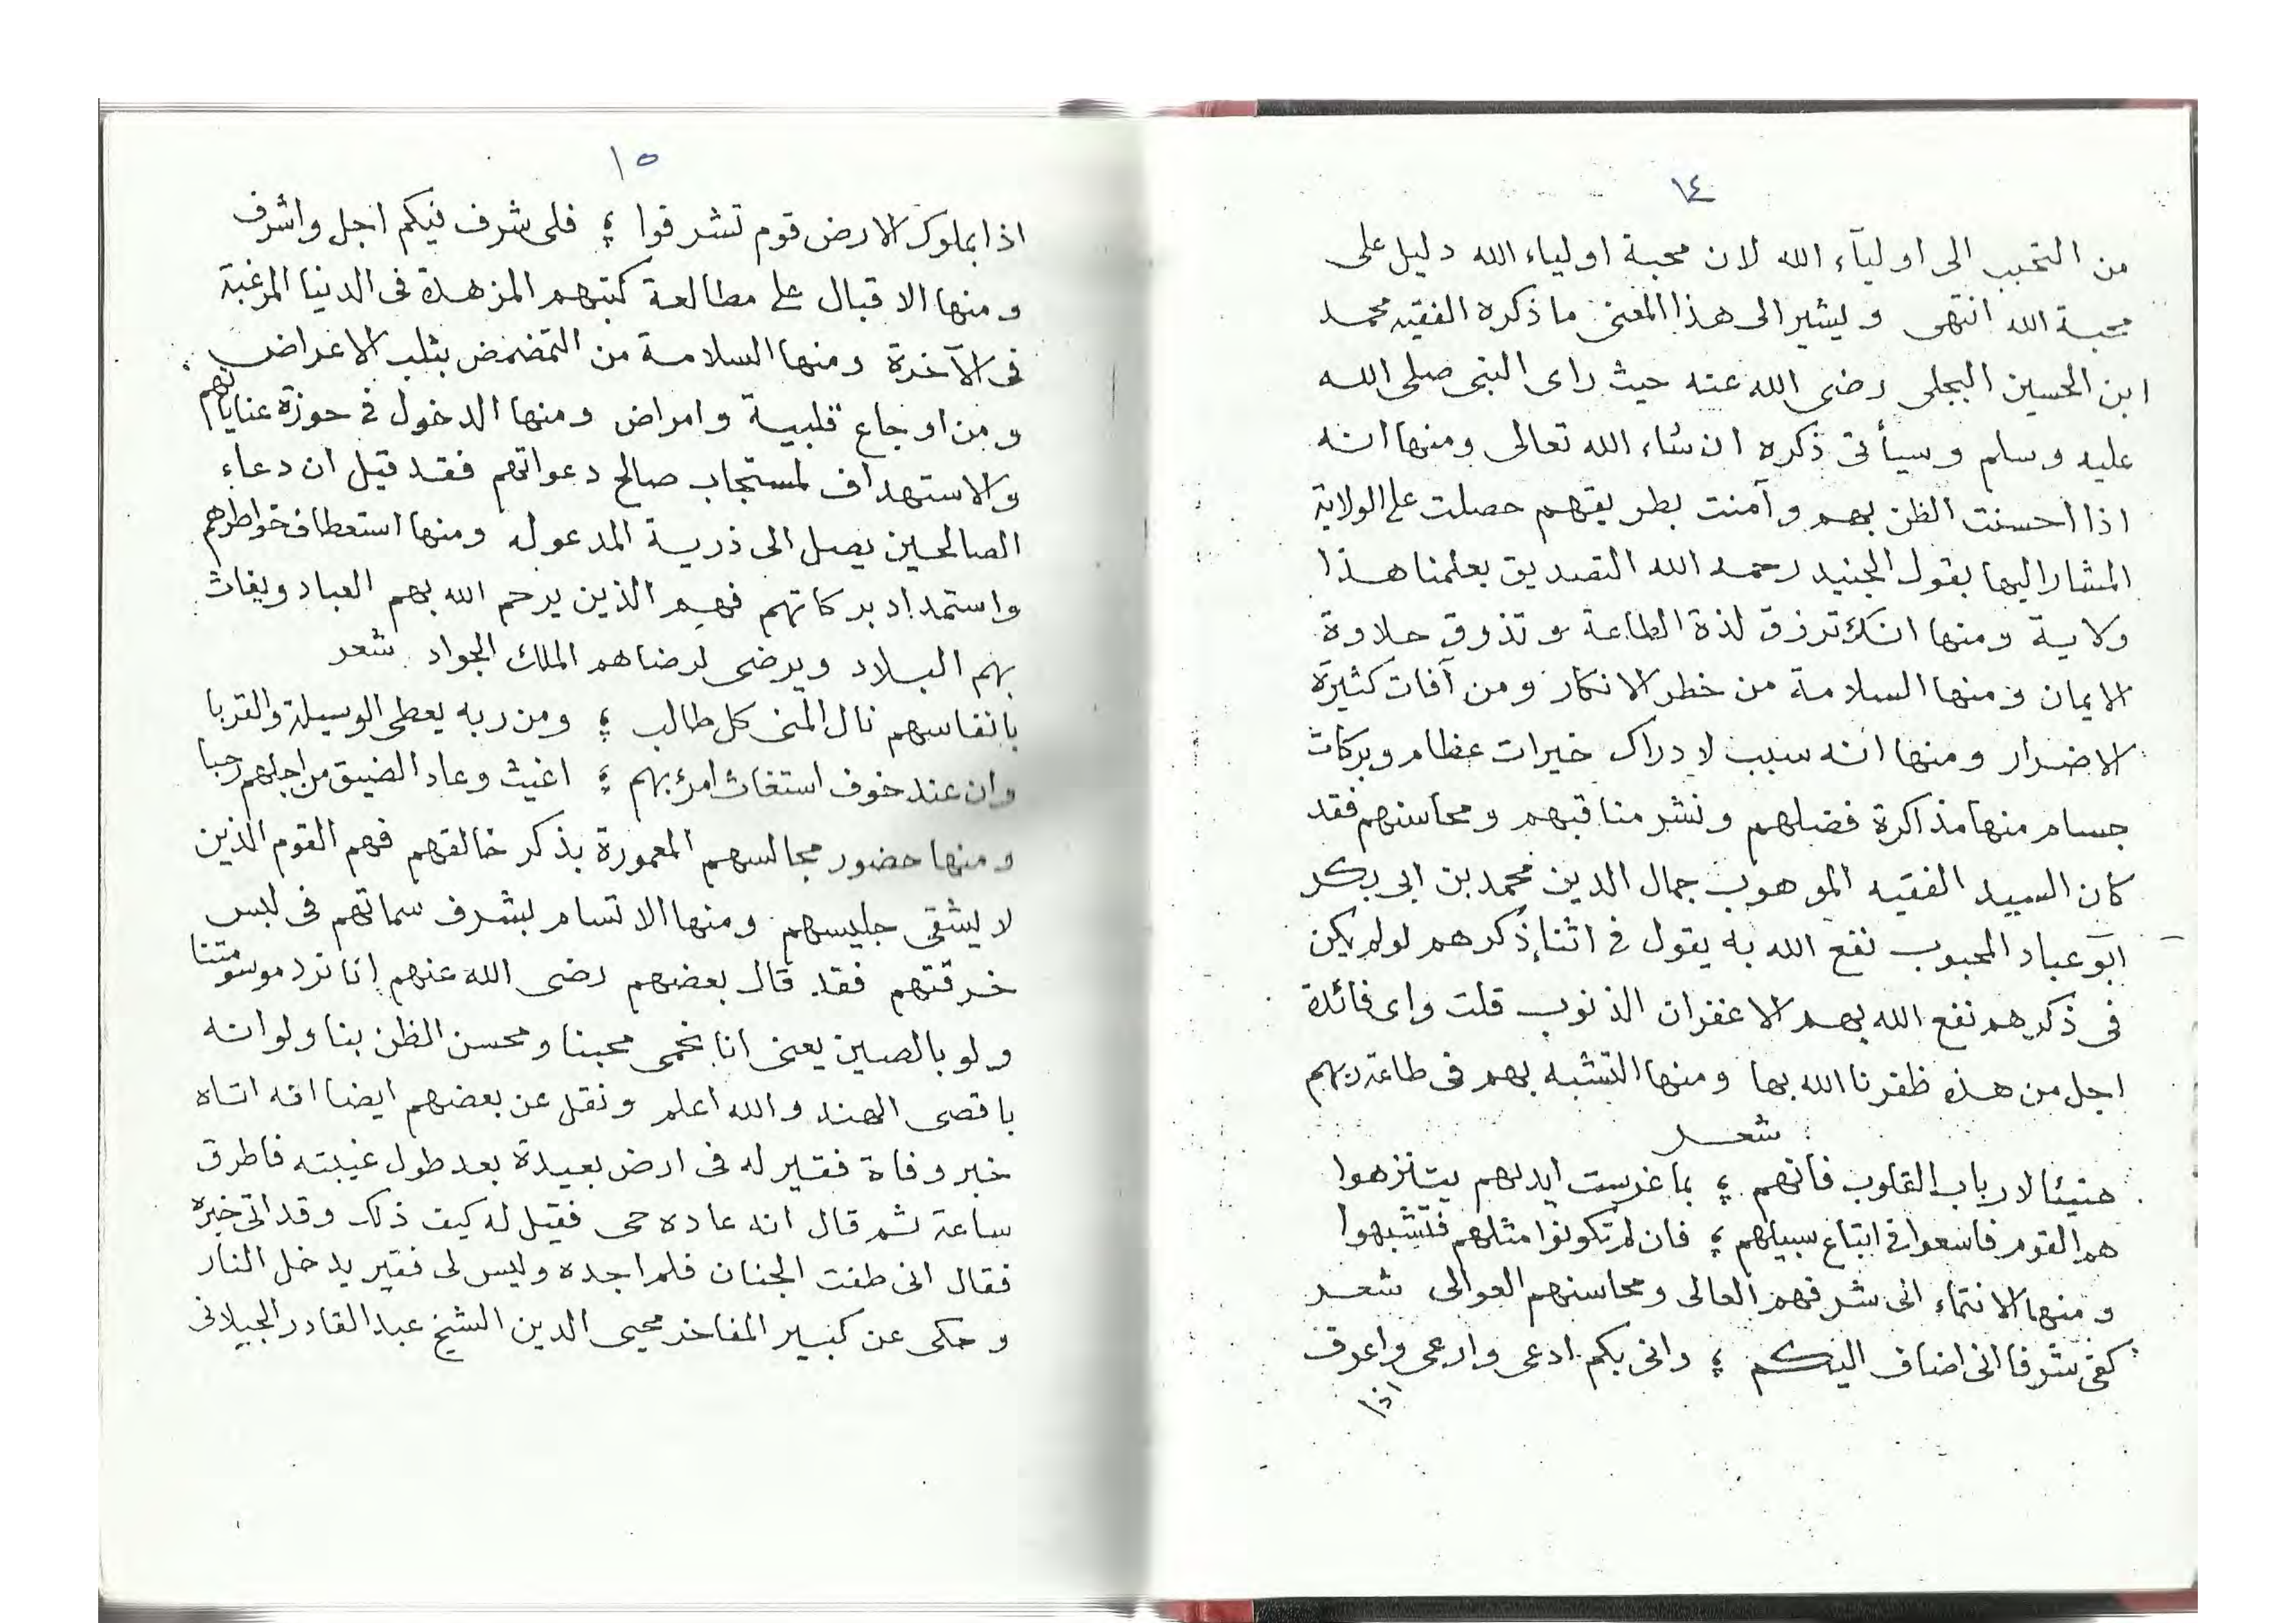 ١٤
من التحبب الى اوليآء الله لان محبة اولياء الله دليل على
محبة الله انتهى ويشير الى هذا المعنى ما ذكره الفقيه محمد
ابن الحسين البجلى رضى الله عنه حيث راى النبى صلى الله
عليه وسلم وسيأتى ذكره ان شاء الله تعالى ومنها انه
اذا احسنت الظن بهم وآمنت بطريقهم حصلت على الولاية
المشار اليها بقول الجنيد رحمه الله التصديق بعلمنا هذا
ولاية ومنها انك ترزق لذة الطاعة وتذوق حلاوة
الايمان ومنها السلامة من خطر الانكار ومن آفات كثيرة
الاضرار ومنها انه سبب لادراك خيرات عظام وبركات
جسام منها مذاكرة فضلهم ونشر مناقبهم ومحاسنهم فقد
كان السيد الفقيه الموهوب جمال الدين محمد بن ابى بكر
ابو عباد المحبوب نفع الله به يقول فى اثناء ذكرهم لو لم يكن
فى ذكرهم نفع الله بهم الا غفران الذنوب قلت واى فائدة
اجل من هذه ظفرنا الله بها ومنها التشبه بهم فى طاعة ربهم
شعر
هنيئا لارباب القلوب فانهم ؛ بما غرست ايديهم يتنزهوا
هم القوم فاسعوا فى اتباع سبيلهم ؛ فان لم تكونوا مثلهم فتشبهوا
ومنها الانتماء الى شرفهم العالى ومحاسنهم العوالى شعر
كفى شرفا انى اضاف اليكم ؛ وانى بكم ادعى وارعى واعرف
اذا
١٥
اذا بملوك الارض قوم تشرفوا ؛ فلى شرف فيكم اجل واشرف
ومنها الاقبال على مطالعة كتبهم المزهدة فى الدنيا المرغبة
فى الآخرة ومنها السلامة من التمضمض بثلب الاعراض
ومن اوجاع قلبية وامراض ومنها الدخول فى حوزة عناياتهم
والاستهداف لمستجاب صالح دعواتهم فقد قيل ان دعاء
الصالحين يصل الى ذرية المدعو له ومنها استعطاف خواطرهم
واستمداد بركاتهم فهم الذين يرحم الله بهم العباد ويغاث
بهم البلاد ويرضى لرضاهم الملك الجواد شعر
بانفاسهم نال المنى كل طالب ؛ ومن ربه يعطى الوسيلة والقربا
وان عند خوف استغاث امرؤ بهم ؛ اغيث وعاد الضيق من اجلهم رحبا
ومنها حضور مجالسهم المعمورة بذكر خالقهم فهم القوم الذين
لا يشقى جليسهم ومنها الاتسام بشرف سماتهم فى لبس
خرقتهم فقد قال بعضهم رضى الله عنهم انا نرد موسومتنا
ولو بالصين يعنى انا نحمى محبنا ومحسن الظن بنا ولو انه
باقصى الهند والله اعلم ونقل عن بعضهم ايضا انه اتاه
خبر وفاة فقير له فى ارض بعيدة بعد طول غيبته فاطرق
ساعة ثم قال انه عاده حى فقيل له كيف ذلك وقد اتى خبره
فقال انى طفت الجنان فلم اجده وليس لى فقير يدخل النار
وحكى عن كبير المفاخر محيى الدين الشيخ عبد القادر الجيلانى